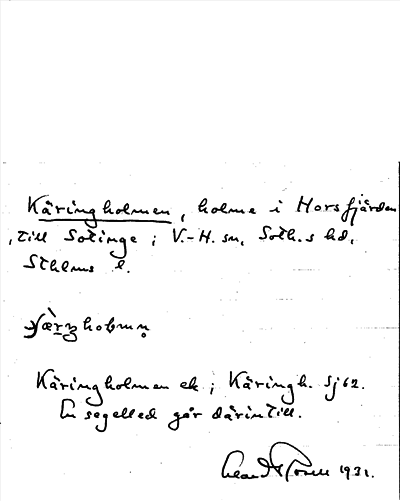 Käringholmen, holme i Horsfjärden
, till Sotinge i V.-H. sn, Soth.s hd,
Sthlms l.
Käringholmen ek ; Käringh. Sj 62.
En segelled går därintill.
1931.